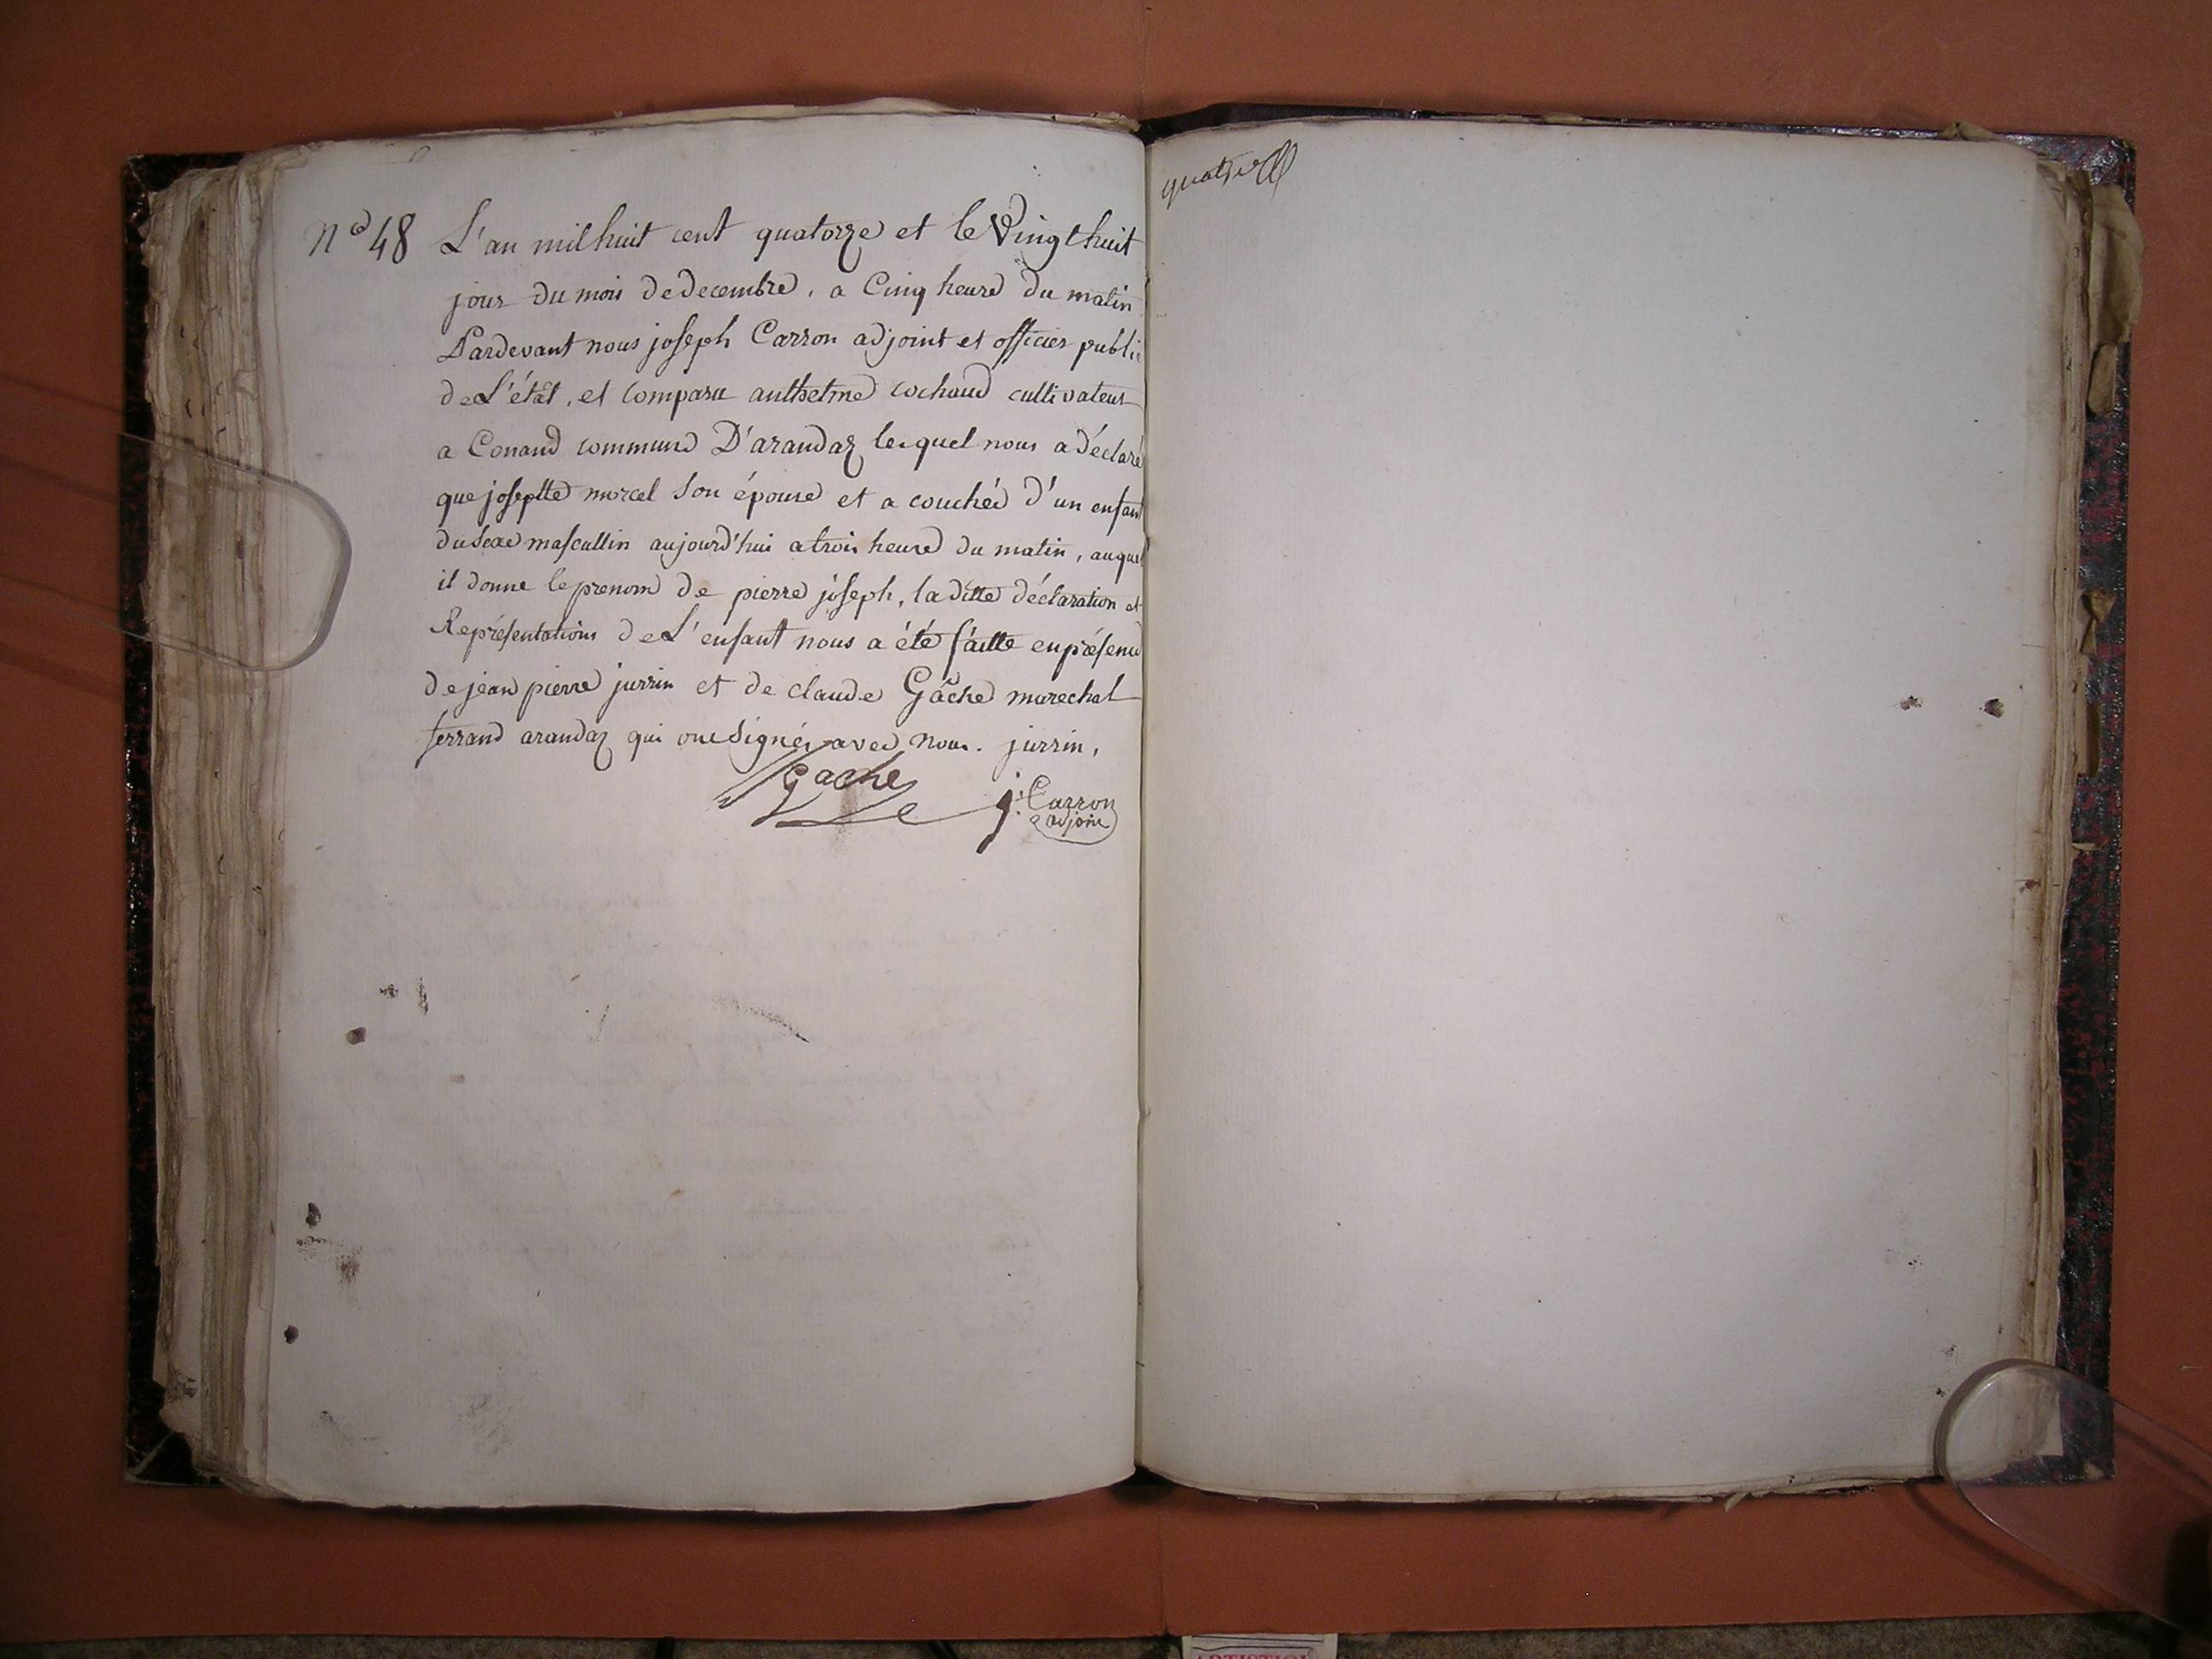 N° 48 L'an mil huit cent quatorze et le Vingt huit
jour du mois de decembre, a Cinq heure du matin
Pardevant nous joseph Carron adjoint et officier public
de L'état, et Comparu anthelme cochaud cultivateur
a Conand commune D'arandaz lequel nous a déclaré
que josephte morcel son épouse et a couchée d'un enfant
du sexe mascullin aujourd'hui a trois heure du matin, auquel
il donne le prenom de pierre joseph, la ditte déclaration et
Représentations de L'enfant nous a été faitte en présence
de jean pierre jurrin et de claude Gâche marechal
ferrand arandaz qui ont signés avec nous. jurrin,
Gache
j. Carron
adjoint